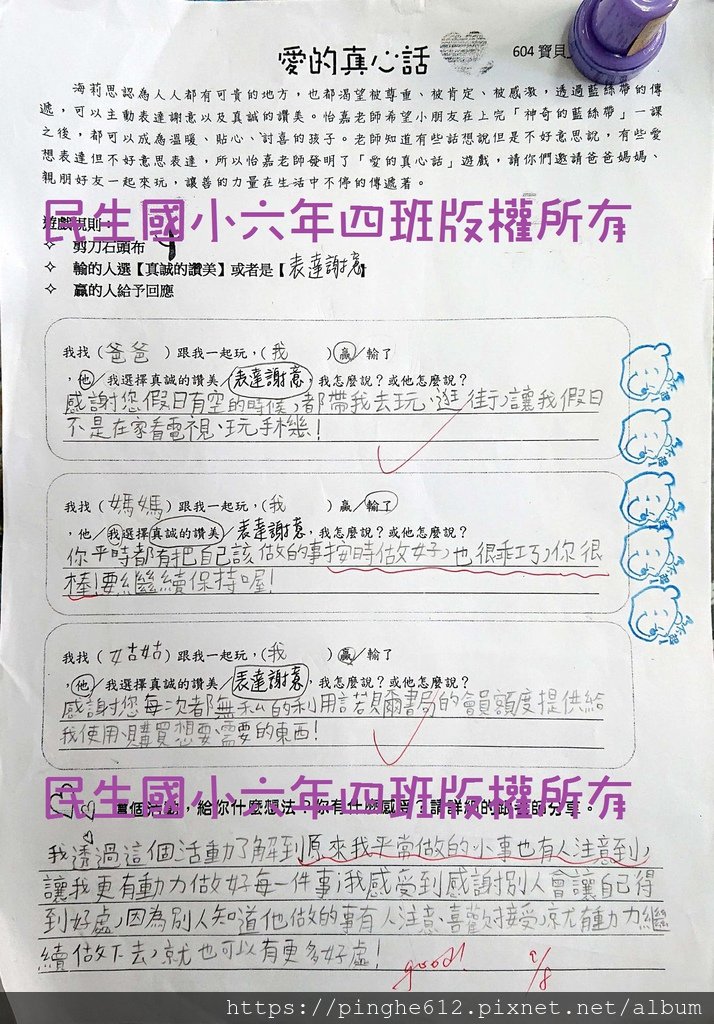 愛的真心話
604 寶貝
海莉思認為人人都有可貴的地方，也都渴望被尊重、被肯定、被感激，透過藍絲帶的傳
遞，可以主動表達謝意以及真誠的讚美。怡嘉老師希望小朋友在上完「神奇的藍絲帶」一課
之後，都可以成為溫暖、貼心、討喜的孩子。老師知道有些話想說但是不好意思說，有些愛
想表達但不好意思表達，所以怡嘉老師發明了「愛的真心話」遊戲，請你們邀請爸爸媽媽、
親朋好友一起來玩，讓善的力量在生活中不停的傳遞著。
民生國小六年四班版權所有
遊戲規則：
✧ 剪刀石頭布
✧ 輸的人選【真誠的讚美】或者是【表達謝意】
✧ 贏的人給予回應
我找（爸爸）跟我一起玩，（我）贏／輸了
，他／我選擇真誠的讚美／表達謝意，我怎麼說？或他怎麼說？
感謝您假日有空的時候，都帶我去玩、逛街，讓我假日
不是在家看電視、玩手機！
我找（媽媽）跟我一起玩，（我）贏／輸了
，他／我選擇真誠的讚美／表達謝意，我怎麼說？或他怎麼說？
你平時都有把自己該做的事按時做好，也很乖巧，你很
棒！要繼續保持喔！
我找（姑姑）跟我一起玩，（我）贏／輸了
，他／我選擇真誠的讚美／表達謝意，我怎麼說？或他怎麼說？
感謝您每次都無私的利用諾貝爾書局的會員額度提供給
我使用、購買想要、需要的東西！
民生國小六年四班版權所有
這個活動，給你什麼想法？你有什麼感受？請詳細的跟老師分享。
我透過這個活動了解到原來我平常做的小事也有人注意到，
讓我更有動力做好每一件事；我感受到感謝別人會讓自己得
到好處，因為別人知道他做的事有人注意、喜歡、接受，就有動力繼
續做下去，就也可以有更多好處！
good!
9/8
https://pinghe612.pixnet.net/album